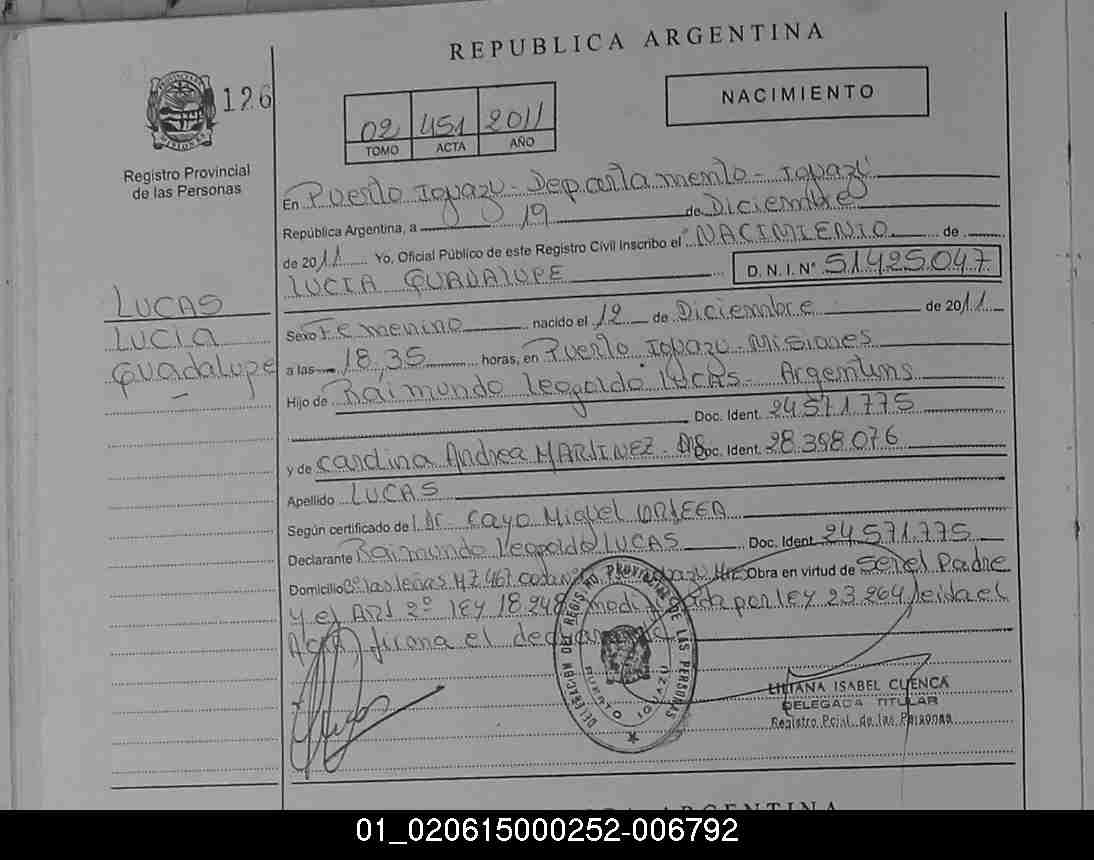 REPUBLICA ARGENTINA
PROVINCIA DE
MISIONES
126
Registro Provincial
de las Personas
02 451 2011
TOMO ACTA AÑO
NACIMIENTO
En Puerto Iguazu - Departamento - Iguazu
República Argentina, a 19 de Diciembre
de 2011 Yo, Oficial Público de este Registro Civil Inscribo el NACIMIENTO de
LUCIA GUADALUPE D. N. I. N° 51425047
LUCAS
LUCIA
Guadalupe
Sexo Femenino nacido el 12 de Diciembre de 2011
a las 18,35 horas, en Puerto Iguazu - Misiones
Hijo de Raimundo Leopoldo LUCAS - Argentino
Doc. Ident. 24571775
y de Carolina Andrea MARTINEZ - Doc. Ident. 28.398.076
Apellido LUCAS
Según certificado de Dr Cayo Miguel
Declarante Raimundo Leopoldo LUCAS Doc. Ident. 24.571.775
Domicilio MZ 467 Obra en virtud de Ser el Padre
y el Art 2º LEY 18.248 modificada por LEY 23.264 leida el
Acta, firma el declarante
DELEGACION DEL REGISTRO PROVINCIAL DE LAS PERSONAS
PUERTO IGUAZU
LILIANA ISABEL CUENCA
DELEGADA TITULAR
Registro Pcial. de las Personas
REPUBLICA ARGENTINA
01_020615000252-006792